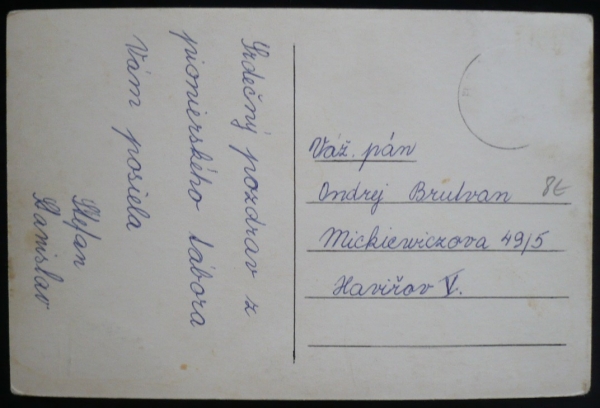 Srdečný pozdrav z
pionierského tábora
Vám posiela
Štefan
Stanislav
Váž. pán
Ondrej Brutvan
Mickiewiczova 49/5
Haviřov V.
8€